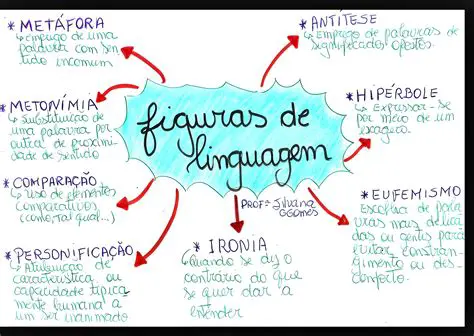 * METÁFORA
↳ emprego de uma
palavra com sen
tido incomum
* METONÍMIA
↳ Substituição de
uma palavra por
outra/ de proximi
dade de sentido
* COMPARAÇÃO
↳ Uso de elementos
comparativos
(como, tal qual...)
* PERSONIFICAÇÃO
↳ Atribuição de
característica ou
capacidade típica
mente humana a
um ser inanimado
figuras de
linguagem
PROFª Silvana
Gomes
* IRONIA
↳ Quando se diz o
contrário do que
se quer dar a
entender
* ANTÍTESE
↳ Emprego de palavras de
significados opostos.
* HIPÉRBOLE
↳ Expressa-se
por meio de um
exagero.
* EUFEMISMO
Escolha de pala
vras mais delica
das ou gentis para
evitar constran
gimento ou des
conforto.